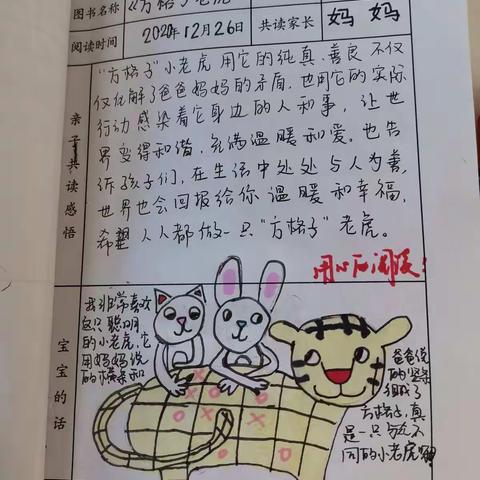 图书名称 《方格子老虎
阅读时间 2020年12月26日 共读家长 妈妈
亲子共读感悟
"方格子"小老虎用它的纯真、善良不仅
仅化解了爸爸妈妈的矛盾,也用它的实际
行动感染着它身边的人和事,让世
界变得和谐,充满温暖和爱。也告
诉孩子们,在生活中处处与人为善,
世界也会回报给你温暖和幸福,
希望人人都做一只"方格子"老虎。
用心阅读!
宝宝的话
我非常喜欢
这只聪明
的小老虎,它
用妈妈说
的横条和
爸爸说
的竖条
组成了
方格子,真
是一只与众不
同的小老虎啊